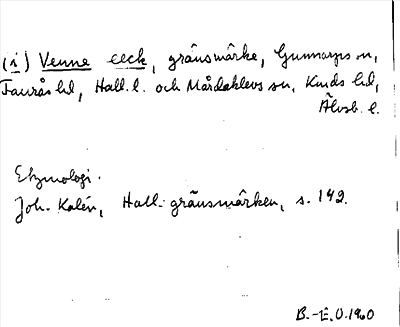 (i) Venne eeck, gränsmärke, Gunnarps sn,
Faurås hd, Hall. l. och Mårdaklevs sn, Kinds hd,
Älvsb. l.
Etymologi.
Joh. Kalén, Hall. gränsmärken, s. 142.
B.-E.O. 1960